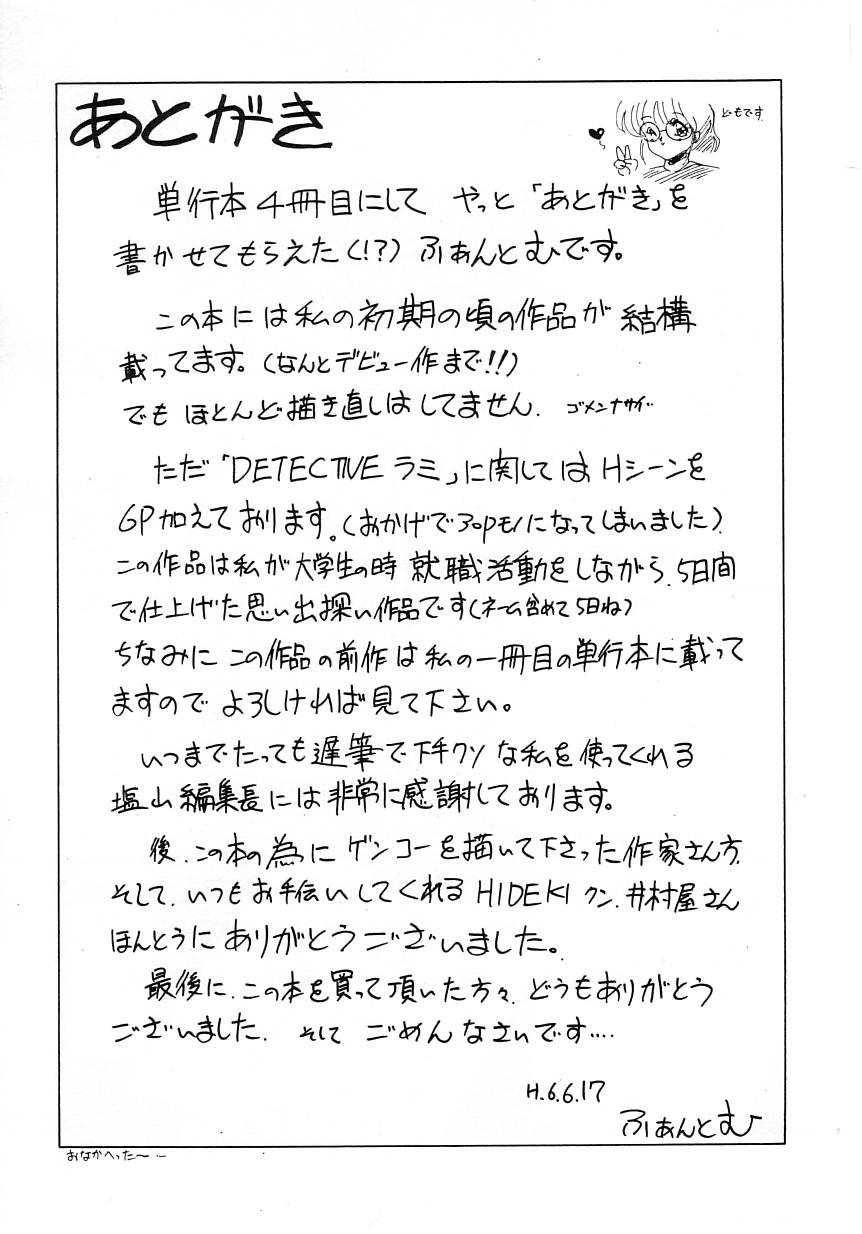 あとがき
どもです
単行本4冊目にして やっと「あとがき」を
書かせてもらえた(!?) ふぁんとむです。
この本には私の初期の頃の作品が 結構
載ってます。(なんとデビュー作まで!!)
でも ほとんど描き直しはしてません. ゴメンナサイ..
ただ「DETECTIVE ラミ」に関しては Hシーンを
6P加えております。(おかげで30Pモノになってしまいました).
この作品は私が大学生の時 就職活動をしながら, 5日間
で仕上げた思い出深い作品です(ネーム含めて5日ね)
ちなみに この作品の前作は私の一冊目の単行本に載って
ますので よろしければ見て下さい。
いつまでたっても遅筆で下手クソな私を使ってくれる
塩山編集長には非常に感謝しております。
後, この本の為に ゲンコーを描いて下さった作家さん方,
そして, いつもお手伝いしてくれる HIDEKI クン, 井村屋さん
ほんとうに ありがとうございました。
最後に, この本を買って頂いた方々, どうもありがとう
ございました. そして ごめんなさいです‥‥
H.6.6.17
ふぁんとむ
おなかへった〜..